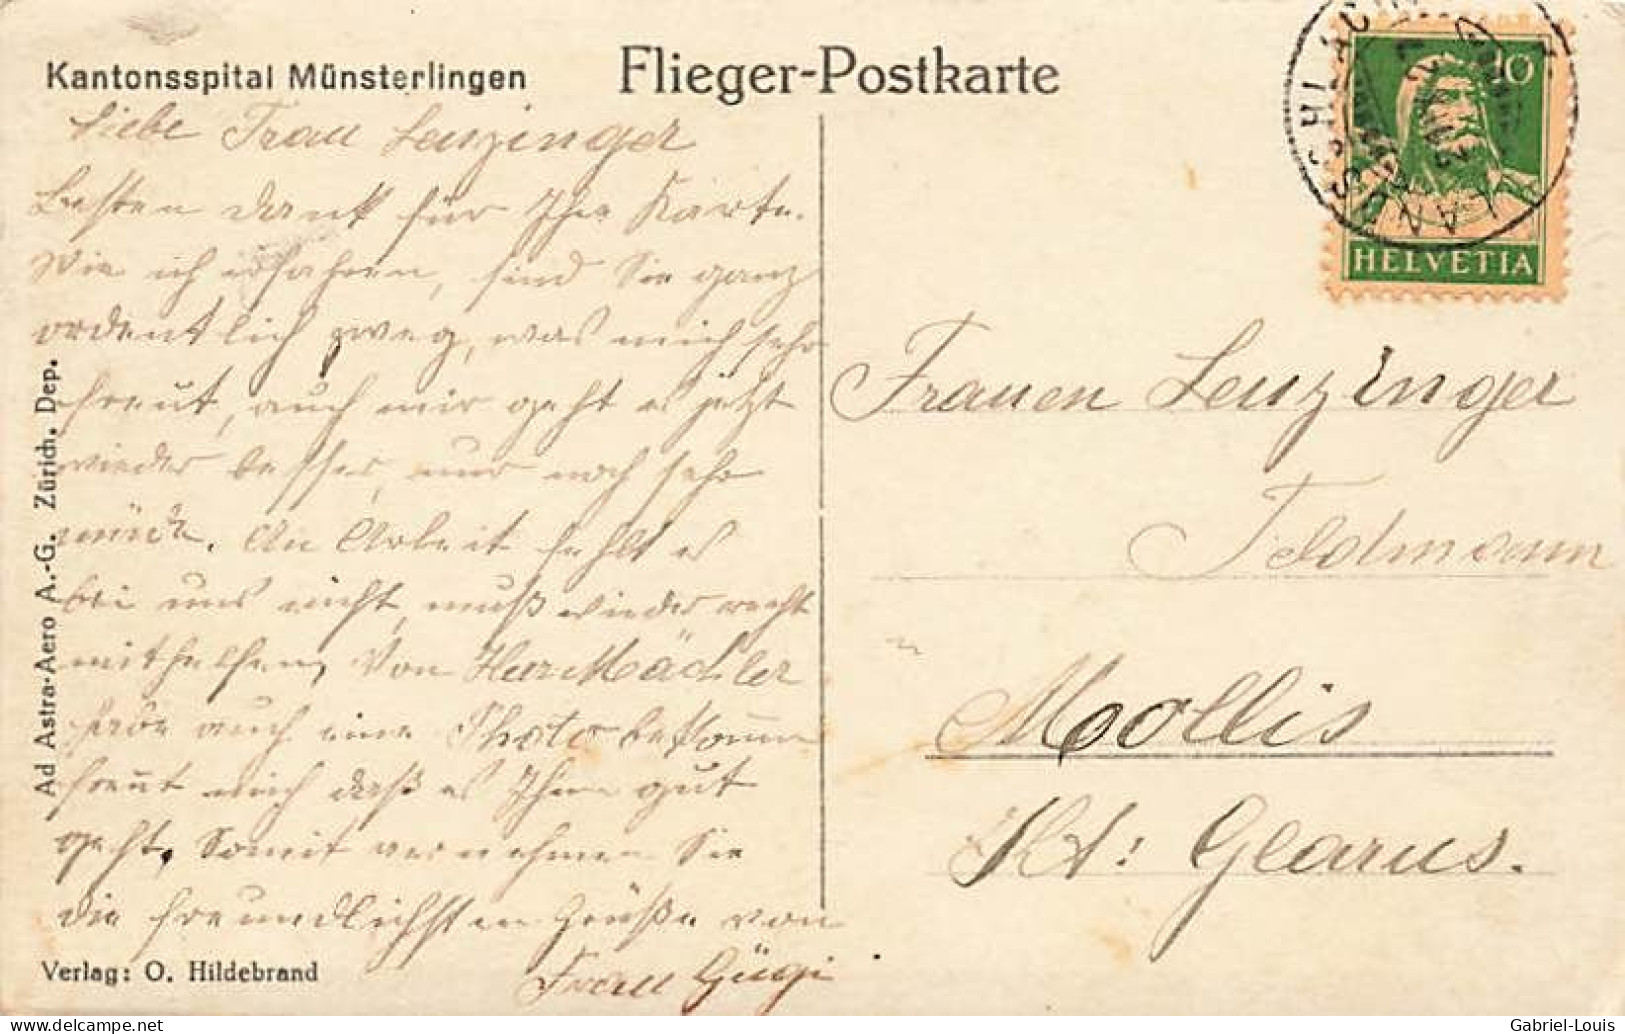 Kantonsspital Münsterlingen
Flieger-Postkarte
10
HELVETIA
Liebe Frau Leuzinger
Besten Dank für Ihre Karte.
Wie ich erfahren, sind Sie ganz
ordentlich zweg, was mich sehr
freut, auch mir geht es jetzt
wieder besser, nur noch sehr
müde. An Arbeit fehlt es
bei uns nicht, muß wieder recht
mithelfen, von Herr Mächler
habe auch eine Photo bekommen
freut mich daß es Ihnen gut
geht. Somit vernehmen Sie
die freundlichsten Grüße von
Frau Gügi
Frauen Leuzinger
Feldmann
Mollis
Kt: Glarus.
Ad Astra-Aero A.-G. Zürich. Dep.
Verlag: O. Hildebrand
delcampe.net
Gabriel-Louis